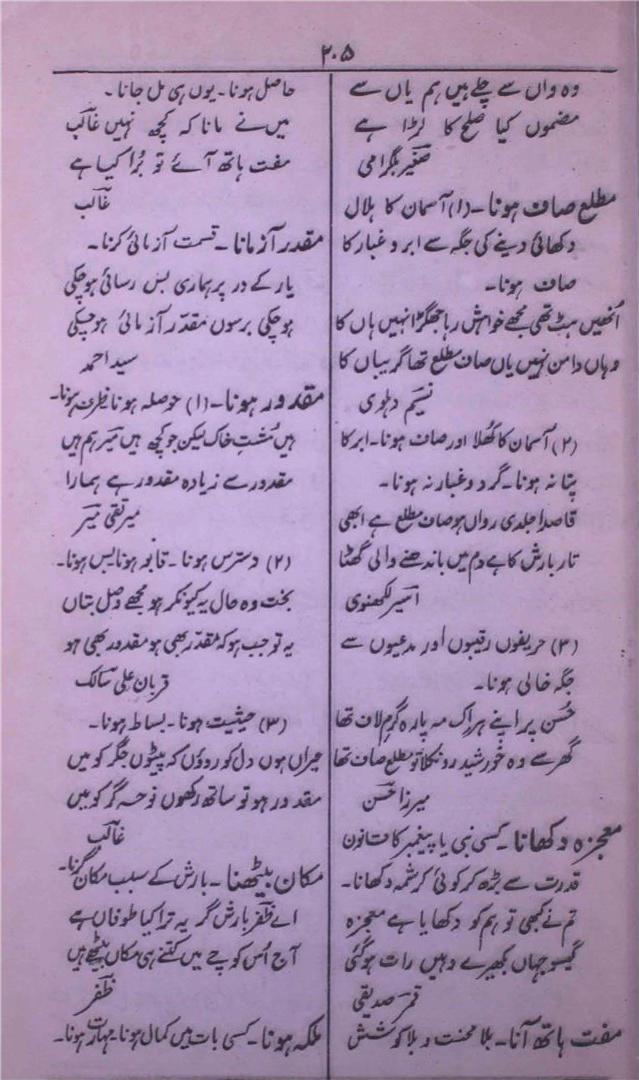 ۲۰۵
وہ واں سے چلے ہیں ہم یاں سے
مضموں کیا صلح کا لڑا ہے
صغیر بلگرامی
مطلع صاف ہونا۔ (۱) آسمان کا ہلال
دکھائی دینے کی جگہ سے ابر و غبار کا
صاف ہونا۔
اُنھیں ہٹ تھی مجھے خواہش رہا جھگڑا نہیں ہاں کا
وہاں دامن نہیں یاں صاف مطلع تھا گریباں کا
نسیم دہلوی
(۲) آسمان کا کھُلا اور صاف ہونا۔ ابر کا
پتا نہ ہونا۔ گرد و غبار نہ ہونا۔
قاصدا جلدی رواں ہو صاف مطلع ہے ابھی
تار بارش کا ہے دم میں باندھنے والی گھٹا
اسیر لکھنوی
(۳) حریفوں رقیبوں اور مدعیوں سے
جگہ خالی ہونا۔
حُسن پر اپنے ہر اک مہ پارہ گرمِ لاف تھا
گھر سے وہ خورشید رو نکلا تو مطلع صاف تھا
میرزا حسن
معجزہ دکھانا۔ کسی نبی یا پیغمبر کا قانون
قدرت سے بڑھ کر کوئی کرشمہ دکھانا۔
تم نے کبھی تو ہم کو دکھایا ہے معجزہ
گیسو جہاں بکھیرے وہیں رات ہو گئی
قمر صدیقی
مفت ہاتھ آنا۔ بلا محنت و بلا کوشش
حاصل ہونا۔ یوں ہی مل جانا۔
میں نے مانا کہ کچھ نہیں غالب
مفت ہاتھ آئے تو بُرا کیا ہے
غالب
مقدر آزمانا۔ قسمت آزمائی کرنا۔
یار کے در پر ہماری بس رسائی ہو چکی
ہو چکی برسوں مقدّر آزمائی ہو چکی
سید احمد
مقدور ہونا۔ (۱) حوصلہ ہونا ظرف ہونا۔
ہیں مُشتِ خاک لیکن جو کچھ ہیں میر ہم ہیں
مقدور سے زیادہ مقدور ہے ہمارا
میر تقی میر
(۲) دسترس ہونا۔ قابو ہونا بس ہونا۔
بخت وہ حال یہ کیونکر ہو مجھے وصل بتاں
یہ تو جب ہو کہ مقدر بھی ہو مقدور بھی ہو
قربان علی سالک
(۳) حیثیت ہونا۔ بساط ہونا۔
حیراں ہوں دل کو روؤں کہ پیٹوں جگر کو میں
مقدور ہو تو ساتھ رکھوں نوحہ گر کو میں
غالب
مکان بیٹھنا۔ بارش کے سبب مکان گرنا۔
اے ظفر بارش گریہ ترا کیا طوفاں ہے
آج اُس کوچے میں کتنے ہی مکاں بیٹھے ہیں
ظفر
ملکہ ہونا۔ کسی بات میں کمال ہونا۔ مہارت ہونا۔